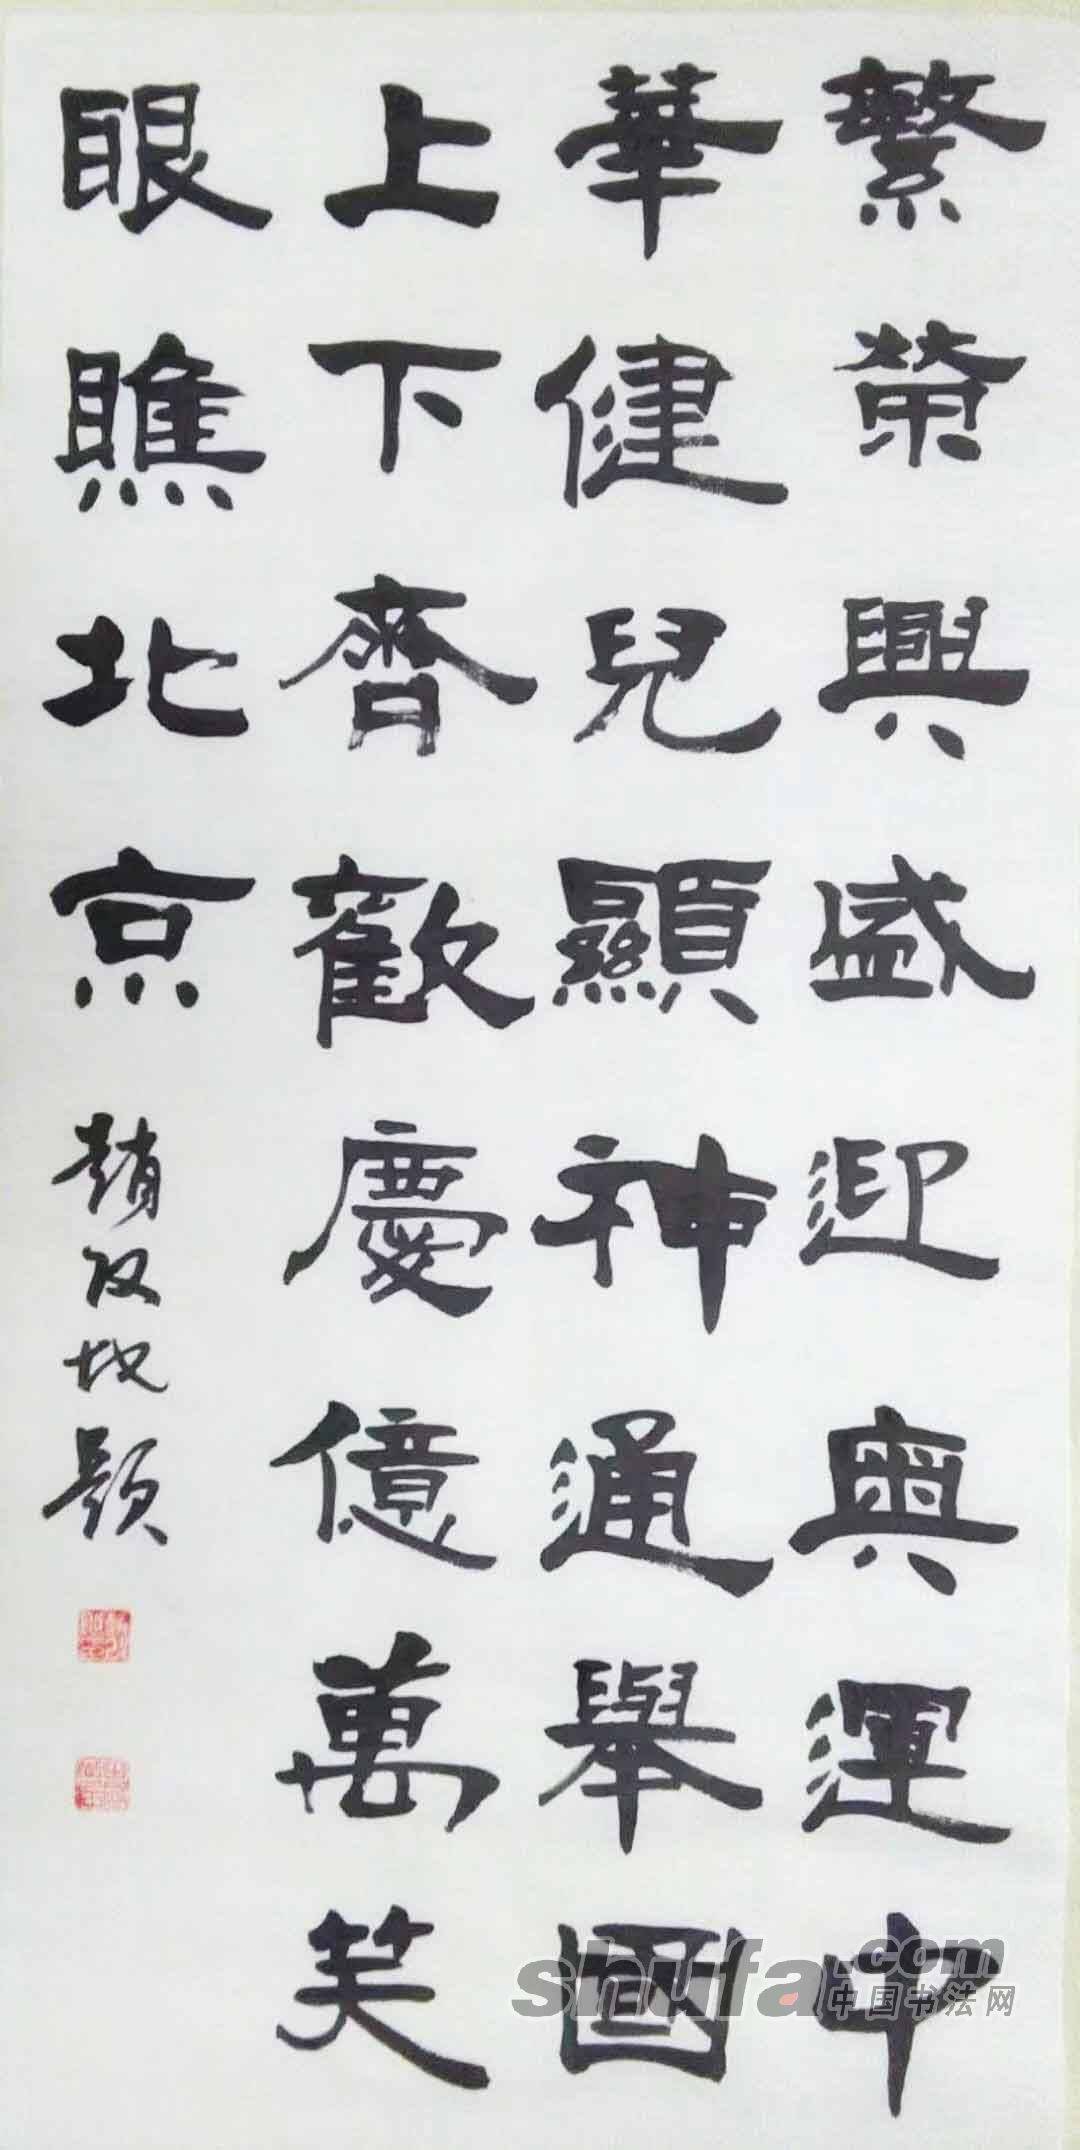 繁榮興盛迎奧運中
華健兒顯神通舉國
上下齊歡慶億萬笑
眼瞧北京
趙
題
shufa.com
中国书法网